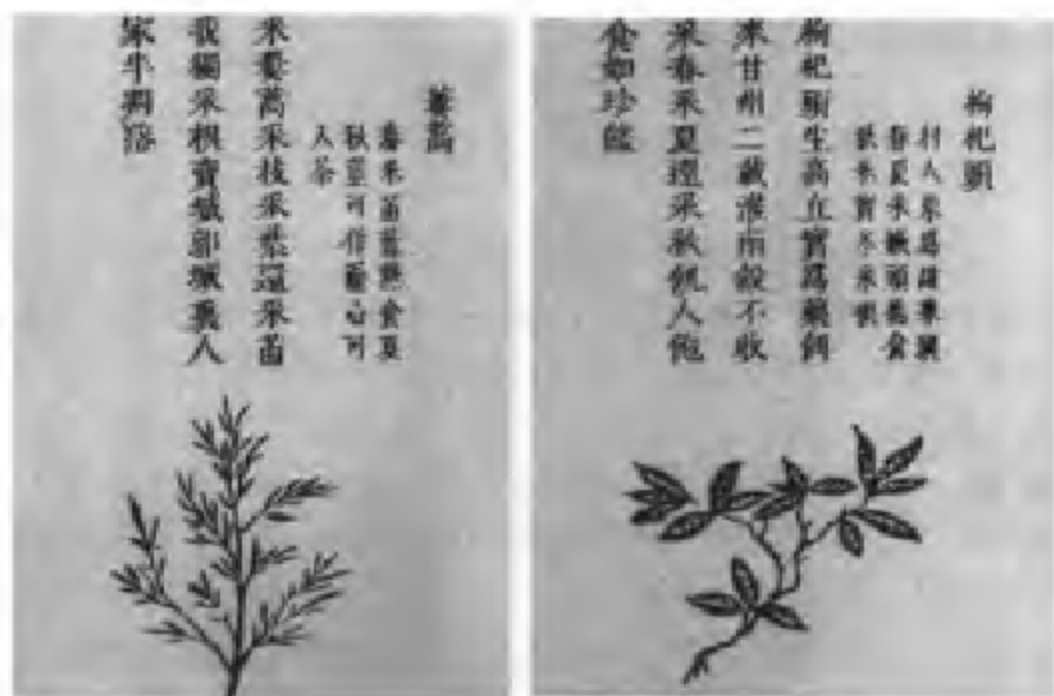 枸杞頭
村人爲甜菜頭
春夏采嫩頭熟食
秋采實冬采根
枸杞頭生高丘實爲藥餌
來甘州二載淮南穀不收
采春采夏還采秋飢人飽
食如珍饈
蔞蒿
春采苗葉熟食夏
秋莖可作虀心可
入茶
采蔞蒿采枝采葉還采苗
我獨采根賣城郭城裏人
家半凋落